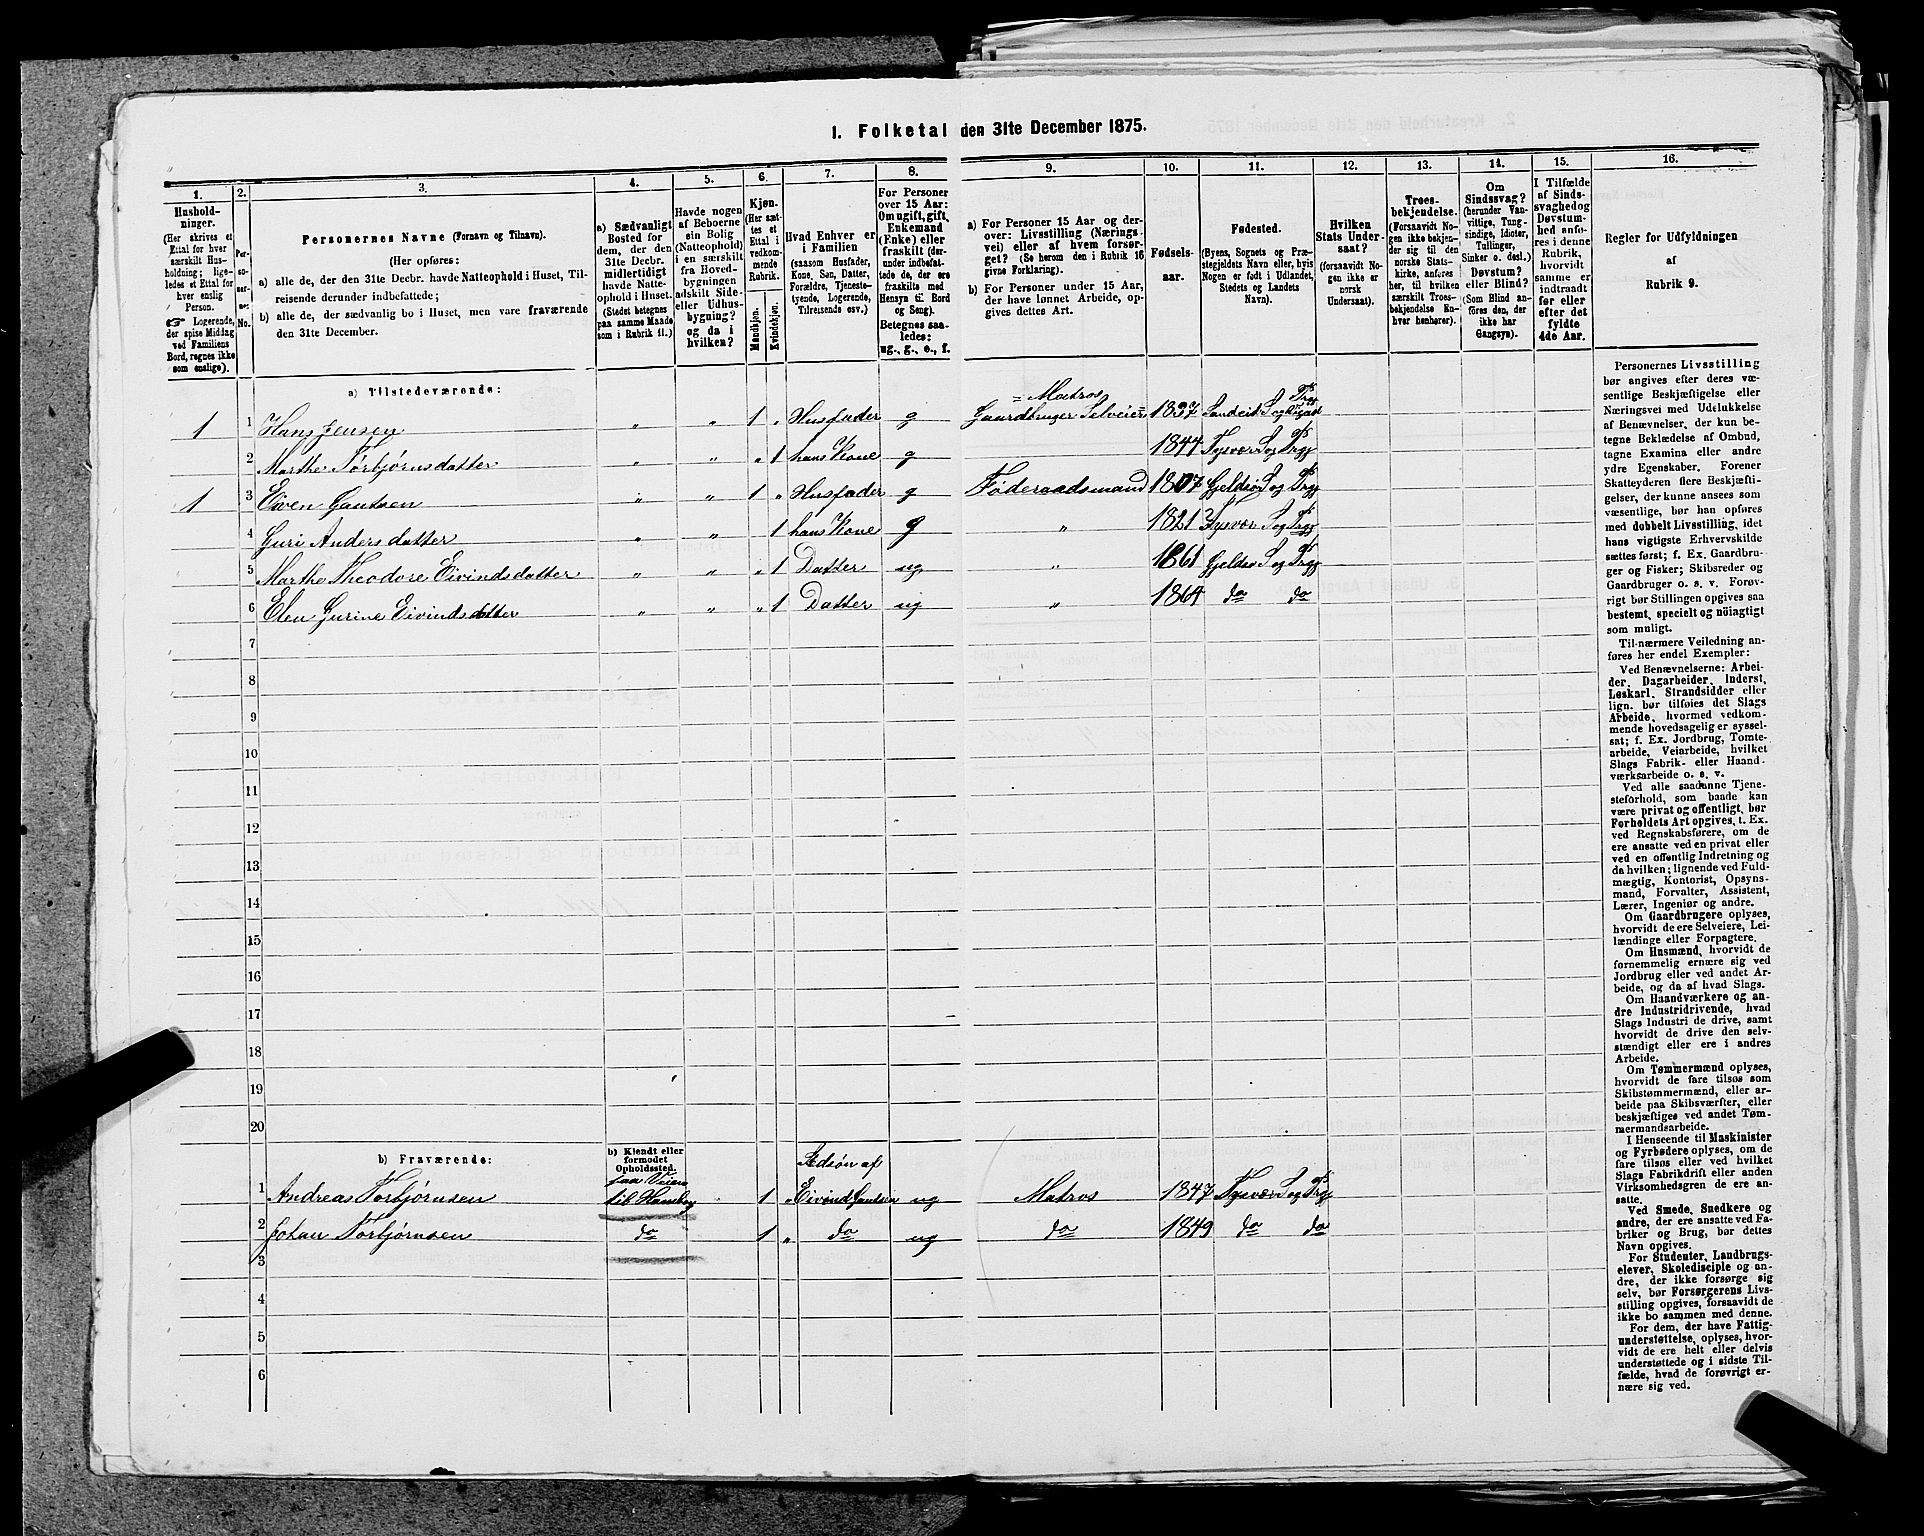 1. Folketal den 31te December 1875.
1.
2.
3.
4.
5.
6.
7.
8.
9.
10.
11.
12.
13.
14.
15.
16.
Hushold-
ninger.
(Her skrives et
Ettal for hver
særskilt Hus-
holdning; lige-
ledes et Ettal for
hver enslig
Person.
☞ Logerende,
der spise Middag
ved Familiens
Bord, regnes ikke
som enslige).
Per-
so-
ner-
nes
No.
Personernes Navne (Fornavn og Tilnavn).
(Her opføres:
a) alle de, der den 31te Decbr. havde Natteophold i Huset, Til-
reisende derunder indbefattede;
b) alle de, der sædvanlig bo i Huset, men vare fraværende
den 31te December.
a) Sædvanligt
Bosted for
dem, der den
31te Decbr.
midlertidigt
havde Natte-
ophold i Huset.
(Stedet betegnes
paa samme Maade
som i Rubrik 11.)
Havde nogen
af Beboerne
sin Bolig
(Natteophold)
i en særskilt
fra Hoved-
bygningen
adskilt Side-
eller Udhus-
bygning?
og da i
hvilken?
Kjøn.
(Her sæt-
tes et
Ettal i
vedkom-
mende
Rubrik.
Mandkjøn.
Kvindekjøn.
Hvad Enhver er
i Familien
(saasom Husfader,
Kone, Søn, Datter,
Forældre, Tjeneste-
tyende, Logerende,
Tilreisende osv.)
For Personer
over 15 Aar:
Om ugift, gift,
Enkemand
(Enke) eller
fraskilt (der-
under indbefat-
tede de, der ere
fraskilte med
Hensyn til Bord
og Seng).
Betegnes saa-
ledes:
ug., g., e., f.
a) For Personer 15 Aar og der-
over: Livsstilling (Nærings-
vei) eller af hvem forsør-
get? (Se herom den i Rubrik 16
givne Forklaring).
b) For Personer under 15 Aar,
der have lønnet Arbeide, op-
gives dettes Art.
Fødsels-
aar.
Fødested.
(Byens, Sognets og Præ-
stegjeldets Navn eller, hvis
Nogen er født i Udlandet,
Stedets og Landets
Navn).
Hvilken
Stats Under-
saat?
(forsaavidt No-
gen ikke er
norsk
Undersaat).
Troes-
bekjendelse.
(Forsaavidt No-
gen ikke bekjen-
der sig til den
norske Stats-
kirke, anføres
her, til hvilken
særskilt Troes-
bekjendelse En-
hver henhører).
Om
Sindssvag?
(herunder Van-
vittige, Tung-
sindige, Idioter,
Tullinger,
Sinker o. desl.)
Døvstum?
eller Blind?
(Som Blind an-
føres den, der
ikke har
Gangsyn).
I Tilfælde
af Sinds-
svaghed og
Døvstum-
hed anfø-
res i denne
Rubrik,
hvorvidt
samme er
indtraadt
før eller
efter det
fyldte
4de Aar.
Regler for Udfyldningen
af
Rubrik 9.
a) Tilstedeværende:
Matros
1 1 Hans Jensen „ „ 1 „ Husfader g Gaardbruger Selveier 1837 Sandeid S og
2 Marthe Torbjørnsdatter „ „ „ 1 hans Kone g 1844 Tysvær S og Prgj
1 3 Eiven Gautsen „ „ 1 „ Husfader g Föderaadsmand 1807 Gjeldsø S og Prgj
4 Guri Andersdatter „ „ 1 hans Kone g „ 1821 Tysvær S og Prgj
5 Marthe Theodore Eivindsdatter „ „ „ 1 Datter ug „ 1861 Gjeldsø S og Prgj
6 Elen Gurine Eivindsdatter „ „ „ 1 Datter ug „ 1864 do do
7
8
9
10
11
12
13
14
15
16
17
18
19
20
b) Fraværende:
b) Kjendt eller
formodet
Opholdssted.
Adsøn af
paa Veien
1 Andreas Torbjørnsen til 1 „ Eivind Gautsen ug Matros 1847 Tysvær S og Prgj
2 Johan Torbjørnsen do 1 „ do ug do 1849 do do
3
4
5
6
Personernes Livsstilling
bør angives efter deres væ-
sentlige Beskjæftigelse eller
Næringsvei med Udelukkelse
af Benævnelser, der kun be-
tegne Beklædelse af Ombud,
tagne Examina eller andre
ydre Egenskaber. Forener
Skatteyderen flere Beskjæfti-
gelser, der kunne ansees som
væsentlige, bør han opføres
med dobbelt Livsstilling, idet
hans vigtigste Erhvervskilde
sættes først; f. Ex. Gaardbru-
ger og Fisker; Skibsreder og
Gaardbruger o. s. v. Forøv-
rigt bør Stillingen opgives saa
bestemt, specielt og nöiagtigt
som muligt.
Til nærmere Veiledning an-
føres her endel Exempler:
Ved Benævnelserne: Arbei-
der, Dagarbeider, Inderst,
Løskarl, Strandsidder eller
lign. bør tilføies det Slags
Arbeide, hvormed vedkom-
mende hovedsagelig er syssel-
sat; f. Ex. Jordbrug, Tomte-
arbeide, Veiarbeide, hvilket
Slags Fabrik- eller Haand-
værksarbeide o. s. v.
Ved alle saadanne Tjene-
steforhold, som baade kan
være privat og offentligt, bør
Forholdets Art opgives, t. Ex.
ved Regnskabsførere, om de
ere ansatte ved en privat eller
ved en offentlig Indretning og
da hvilken; lignende ved Fuld-
mægtig, Kontorist, Opsyns-
mand, Forvalter, Assistent,
Lærer, Ingeniør og andre.
Om Gaardbrugere oplyses,
hvorvidt de ere Selveiere, Lei-
lændinge eller Forpagtere.
Om Husmænd, hvorvidt de
fornemmelig ernære sig ved
Jordbrug eller ved andet Ar-
beide, og da af hvad Slags.
Om Haandværkere og an-
dre Industridrivende, hvad
Slags Industri de drive, samt
hvorvidt de drive den selv-
stændigt eller ere i andres
Arbeide.
Om Tømmermænd oplyses,
hvorvidt de fare tilsøs som
Skibstømmermænd, eller ar-
beide paa Skibsværfter, eller
beskjæftiges ved andet Tøm-
mermandsarbeide.
I Henseende til Maskinister
og Fyrbødere oplyses, om de
fare tilsøs eller ved hvilket
Slags Fabrikdrift eller anden
Virksomhedsgren de ere an-
satte.
Ved Smede, Snedkere og
andre, der ere ansatte ved Fa-
briker og Brug, bør dettes
Navn opgives.
For Studenter, Landbrugs-
elever, Skoledisciple og an-
dre, der ikke forsørge sig
selv, bør Forsørgerens Livs-
stilling opgives, forsaavidt de
ikke bo sammen med denne.
For dem, der have Fattig-
understøttelse, oplyses, hvor-
vidt de ere helt eller delvis
understøttede og i sidste Til-
fælde, hvad de forøvrigt er-
nære sig ved.